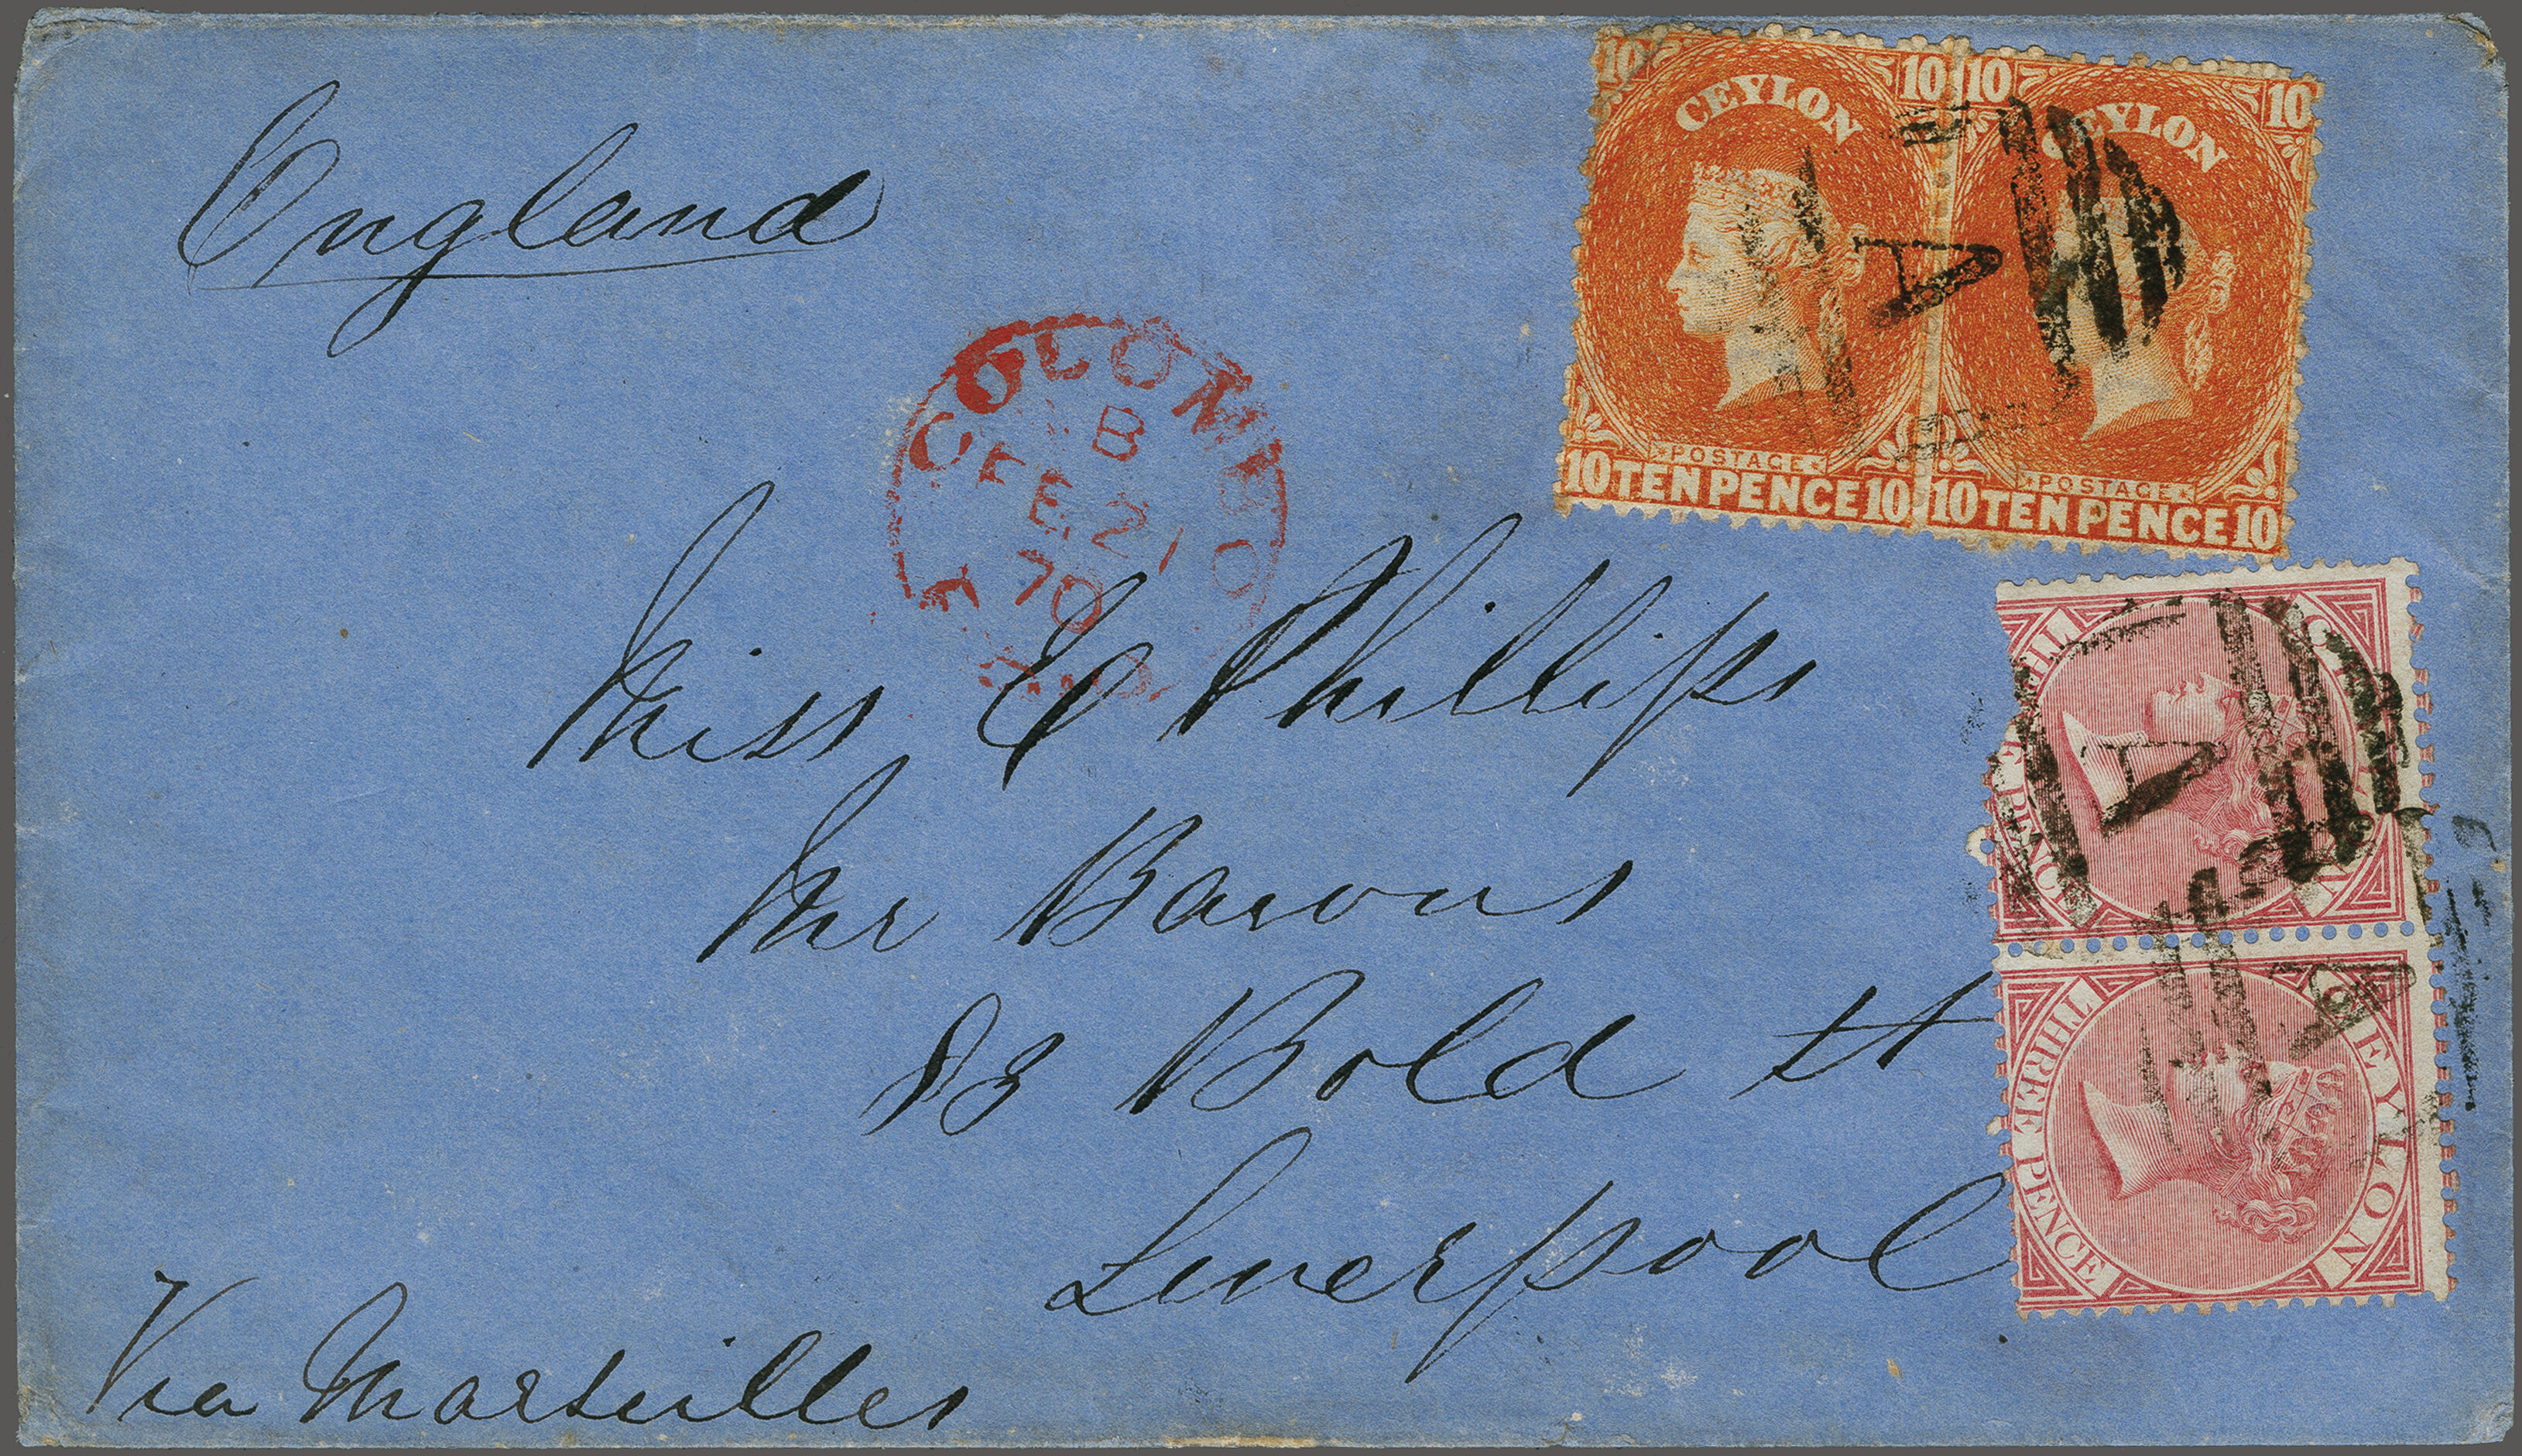 England
10 10 10 10
CEYLON CEYLON
POSTAGE POSTAGE
10 TEN PENCE 10 10 TEN PENCE 10
COLOMBO
B
FE 21
70
PAID
A
A
A
CEYLON
THREE PENCE
CEYLON
THREE PENCE
Miss E Phillips
Mr Bacons
83 Bold St
Liverpool
Via Marseilles